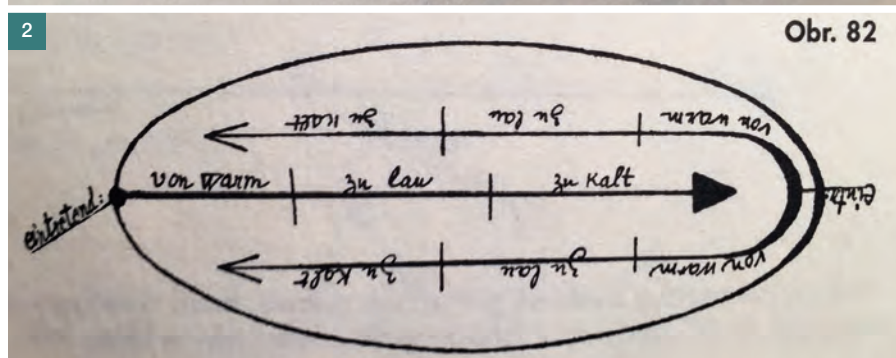 2
Obr. 82
von warm zu lau zu kalt
eintretend: von warm zu lau zu kalt
eintr.
von warm zu lau zu kalt